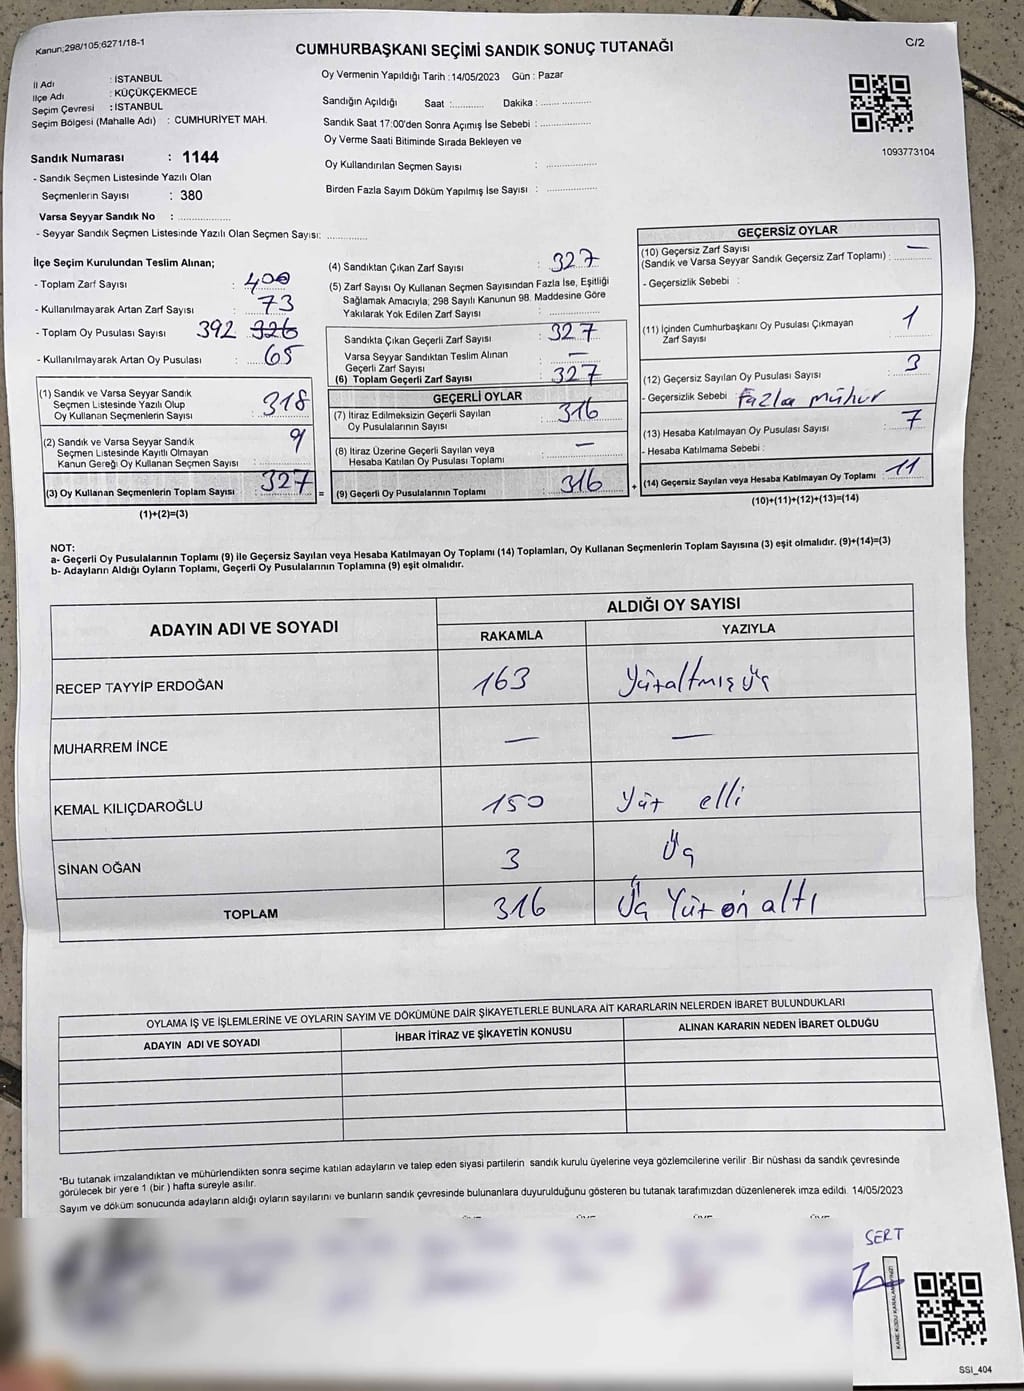 Kanun;298/105;6271/18-1
CUMHURBAŞKANI SEÇİMİ SANDIK SONUÇ TUTANAĞI
C/2
İl Adı : İSTANBUL
İlçe Adı : KÜÇÜKÇEKMECE
Seçim Çevresi : İSTANBUL
Seçim Bölgesi (Mahalle Adı) : CUMHURİYET MAH.
Sandık Numarası : 1144
- Sandık Seçmen Listesinde Yazılı Olan
Seçmenlerin Sayısı : 380
Varsa Seyyar Sandık No : ..................
- Seyyar Sandık Seçmen Listesinde Yazılı Olan Seçmen Sayısı: ..............
Oy Vermenin Yapıldığı Tarih : 14/05/2023 Gün : Pazar
Sandığın Açıldığı Saat :........... Dakika : ..................
Sandık Saat 17:00'den Sonra Açımış İse Sebebi : ..................
Oy Verme Saati Bitiminde Sırada Bekleyen ve
Oy Kullandırılan Seçmen Sayısı : ..................
Birden Fazla Sayım Döküm Yapılmış İse Sayısı : ..................
1093773104
İlçe Seçim Kurulundan Teslim Alınan;
- Toplam Zarf Sayısı : 400
- Kullanılmayarak Artan Zarf Sayısı : 73
- Toplam Oy Pusulası Sayısı 392 326
- Kullanılmayarak Artan Oy Pusulası : 65
(1) Sandık ve Varsa Seyyar Sandık
Seçmen Listesinde Yazılı Olup
Oy Kullanan Seçmenlerin Sayısı : 318
(2) Sandık ve Varsa Seyyar Sandık
Seçmen Listesinde Kayıtlı Olmayan
Kanun Gereği Oy Kullanan Seçmen Sayısı : 9
(3) Oy Kullanan Seçmenlerin Toplam Sayısı : 327 =
(1)+(2)=(3)
(4) Sandıktan Çıkan Zarf Sayısı : 327
(5) Zarf Sayısı Oy Kullanan Seçmen Sayısından Fazla İse, Eşitliği
Sağlamak Amacıyla; 298 Sayılı Kanunun 98. Maddesine Göre
Yakılarak Yok Edilen Zarf Sayısı : ..................
Sandıkta Çıkan Geçerli Zarf Sayısı : 327
Varsa Seyyar Sandıktan Teslim Alınan
Geçerli Zarf Sayısı : —
(6) Toplam Geçerli Zarf Sayısı : 327
GEÇERLİ OYLAR
(7) İtiraz Edilmeksizin Geçerli Sayılan
Oy Pusulalarının Sayısı : 316
(8) İtiraz Üzerine Geçerli Sayılan veya
Hesaba Katılan Oy Pusulası Toplamı : —
(9) Geçerli Oy Pusulalarının Toplamı : 316 +
GEÇERSİZ OYLAR
(10) Geçersiz Zarf Sayısı
(Sandık ve Varsa Seyyar Sandık Geçersiz Zarf Toplamı) : —
- Geçersizlik Sebebi :
(11) İçinden Cumhurbaşkanı Oy Pusulası Çıkmayan
Zarf Sayısı : 1
(12) Geçersiz Sayılan Oy Pusulası Sayısı : 3
- Geçersizlik Sebebi : Fazla mühür
(13) Hesaba Katılmayan Oy Pusulası Sayısı : 7
- Hesaba Katılmama Sebebi :
(14) Geçersiz Sayılan veya Hesaba Katılmayan Oy Toplamı : 11
(10)+(11)+(12)+(13)=(14)
NOT:
a- Geçerli Oy Pusulalarının Toplamı (9) ile Geçersiz Sayılan veya Hesaba Katılmayan Oy Toplamı (14) Toplamları, Oy Kullanan Seçmenlerin Toplam Sayısına (3) eşit olmalıdır. (9)+(14)=(3)
b- Adayların Aldığı Oyların Toplamı, Geçerli Oy Pusulalarının Toplamına (9) eşit olmalıdır.
ADAYIN ADI VE SOYADI
ALDIĞI OY SAYISI
RAKAMLA YAZIYLA
RECEP TAYYİP ERDOĞAN 163 Yüzaltmış üç
MUHARREM İNCE — —
KEMAL KILIÇDAROĞLU 150 Yüz elli
SİNAN OĞAN 3 Üç
TOPLAM 316 Üç Yüz on altı
OYLAMA İŞ VE İŞLEMLERİNE VE OYLARIN SAYIM VE DÖKÜMÜNE DAİR ŞİKAYETLERLE BUNLARA AİT KARARLARIN NELERDEN İBARET BULUNDUKLARI
ADAYIN ADI VE SOYADI İHBAR İTİRAZ VE ŞİKAYETİN KONUSU ALINAN KARARIN NEDEN İBARET OLDUĞU
*Bu tutanak imzalandıktan ve mühürlendikten sonra seçime katılan adayların ve talep eden siyasi partilerin sandık kurulu üyelerine veya gözlemcilerine verilir .Bir nüshası da sandık çevresinde
görülecek bir yere 1 (bir ) hafta süreyle asılır.
Sayım ve döküm sonucunda adayların aldığı oyların sayılarını ve bunların sandık çevresinde bulunanlara duyurulduğunu gösteren bu tutanak tarafımızdan düzenlenerek imza edildi. 14/05/2023
SERT
SSI_404